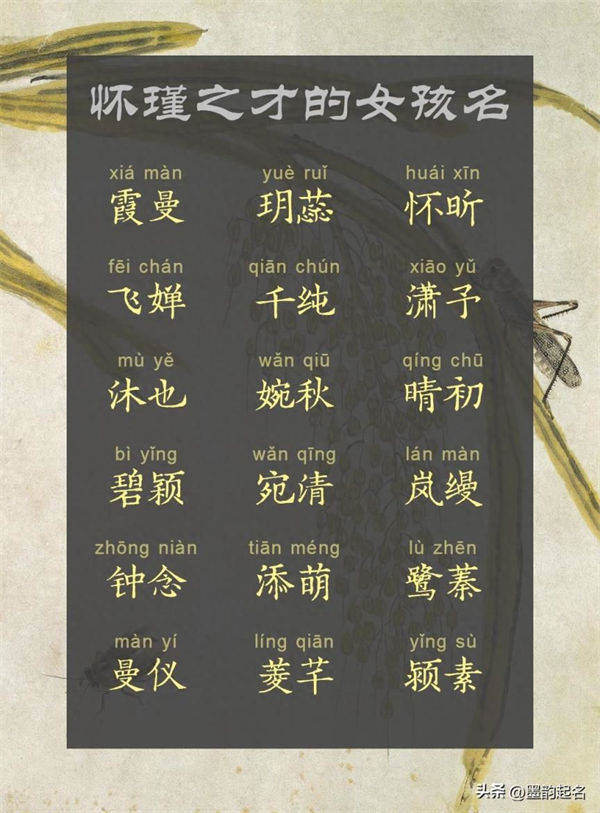 怀瑾之才的女孩名
xiá màn yuè ruǐ huái xīn
霞曼 玥蕊 怀昕
fēi chán qiān chún xiāo yǔ
飞婵 千纯 潇予
mù yě wǎn qiū qíng chū
沐也 婉秋 晴初
bì yǐng wǎn qīng lán màn
碧颖 宛清 岚缦
zhōng niàn tiān méng lù zhēn
钟念 添萌 鹭蓁
màn yí líng qiān yǐng sù
曼仪 菱芊 颖素
头条 @墨韵起名